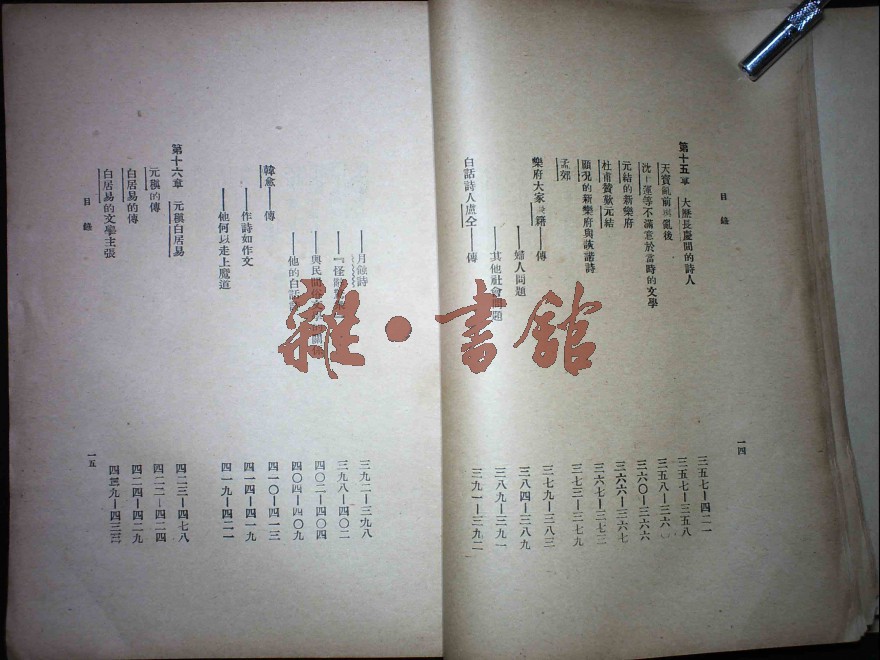 目錄
第十五章 大歷長慶間的詩人 三五七—四二一
天寶亂前與亂後 三五七—三五八
沈千運等不滿意於當時的文學 三五八—三六〇
元結的新樂府 三六〇—三六六
杜甫贊歎元結 三六六—三六七
顧況的新樂府與詼諧詩 三六七—三七三
孟郊 三七三—三七九
樂府大家張籍——傳 三七九—三八三
——婦人問題 三八四—三八九
——其他社會問題 三八九—三九一
白話詩人盧仝——傳 三九一—三九二
一四
——月蝕詩 三九二—三九八
——『怪辭驚 三九八—四〇二
——與民間 四〇二—四〇四
——他的白話 四〇四—四〇九
韓愈——傳 四一〇—四一三
——作詩如作文 四一四—四一九
——他何以走上魔道 四一九—四二一
第十六章 元稹白居易 四二三—四七八
元稹的傳 四二三—四二四
白居易的傳 四二四—四二九
白居易的文學主張 四二九—四三三
目錄
一五
雜·書館